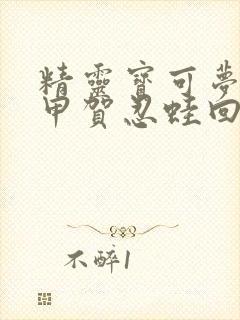 精靈寶可夢
甲賀忍蛙回
不醉1